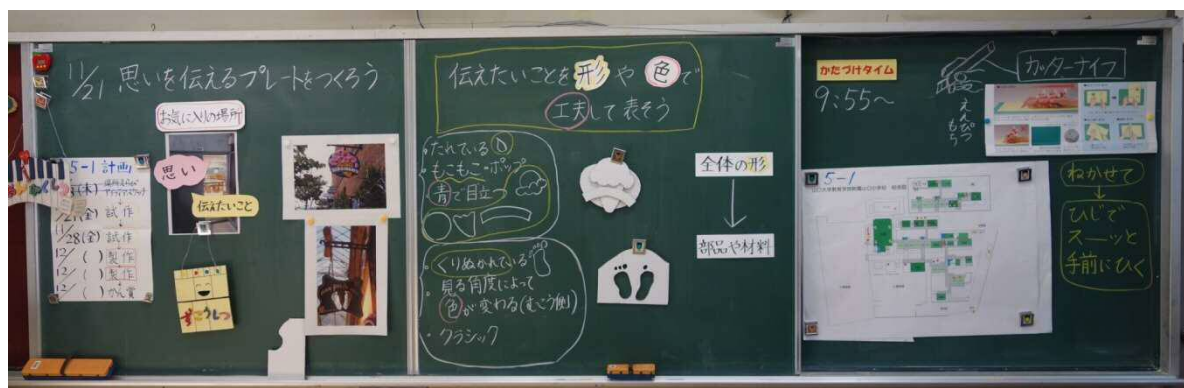 11/21 思いを伝えるプレートをつくろう
お気に入りの場所
思い
伝えたいこと
5-1 計画
(木)
21(金) 試作
11/28(金) 試作
12/ ( ) 製作
12/ ( ) 製作
12/ ( ) かん賞
ずこうしつ
伝えたいことを形や色で
工夫して表そう
・たれている
・もこもこ・ポップ
・青で目立つ
・くりぬかれている
・見る角度によって
色が変わる(むこう側)
・クラシック
全体の形
部品や材料
かたづけタイム
9:55~
カッターナイフ
えんぴつもち
5-1
ねかせて
ひじで
スーッと
手前にひく